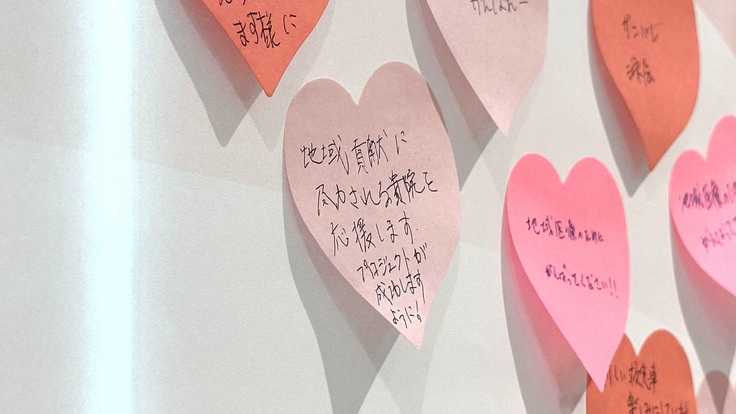 ます様に
がんばれー
地域貢献に
尽力される貴院を
応援します。
プロジェクトが
成功します
ように！
地域医療のために
がんばってください!!
地域医療の
検診車
楽しみにしています